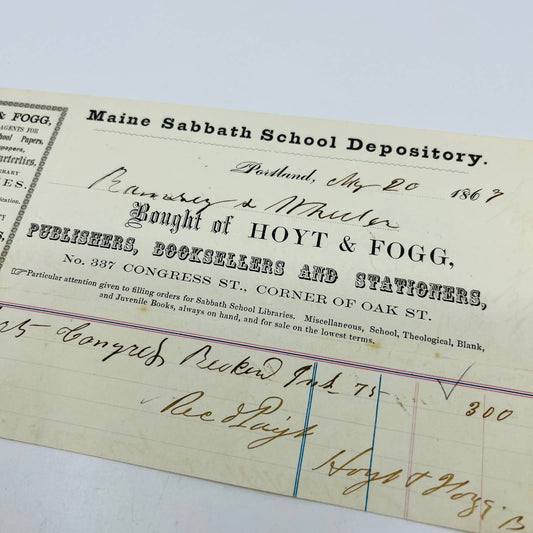 & FOGG,
AGENTS FOR
School Papers,
Newspapers,
Quarterlies,
Maine Sabbath School Depository.
Portland, May 20 1869
Ramsey & Wheeler
Bought of HOYT & FOGG,
PUBLISHERS, BOOKSELLERS AND STATIONERS,
No. 337 CONGRESS ST., CORNER OF OAK ST.
☞Particular attention given to filling orders for Sabbath School Libraries. Miscellaneous, School, Theological, Blank,
and Juvenile Books, always on hand, and for sale on the lowest terms.
Congress 75 300
Rec'd Pay't
Hoyt & Fogg